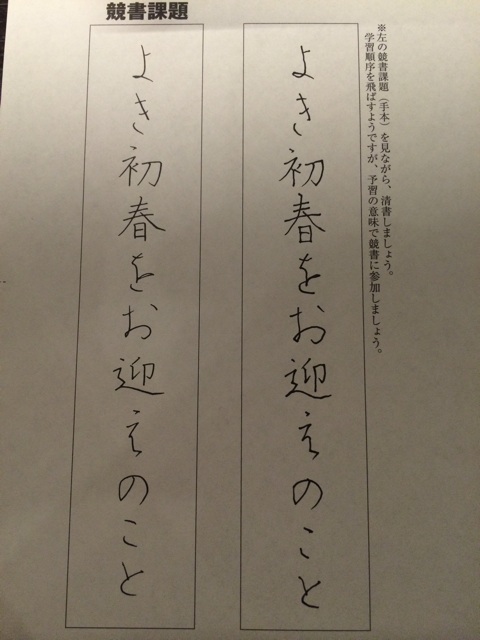 競書課題
※左の競書課題（手本）を見ながら、清書しましょう。
学習順序を飛ばすようですが、予習の意味で競書に参加しましょう。
よき初春をお迎えのこと
よき初春をお迎えのこと